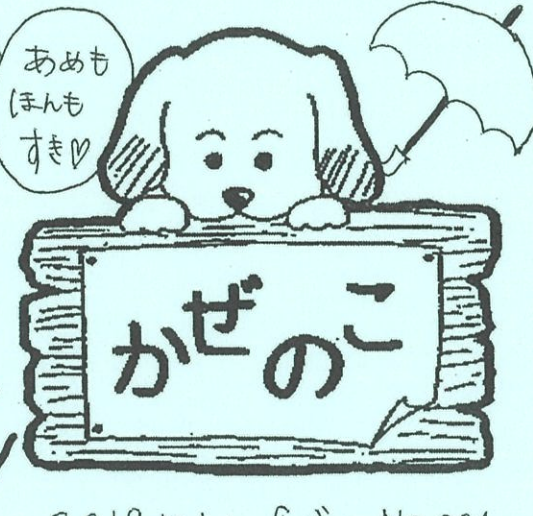 あめも
ほんも
すき♡
かぜのこ